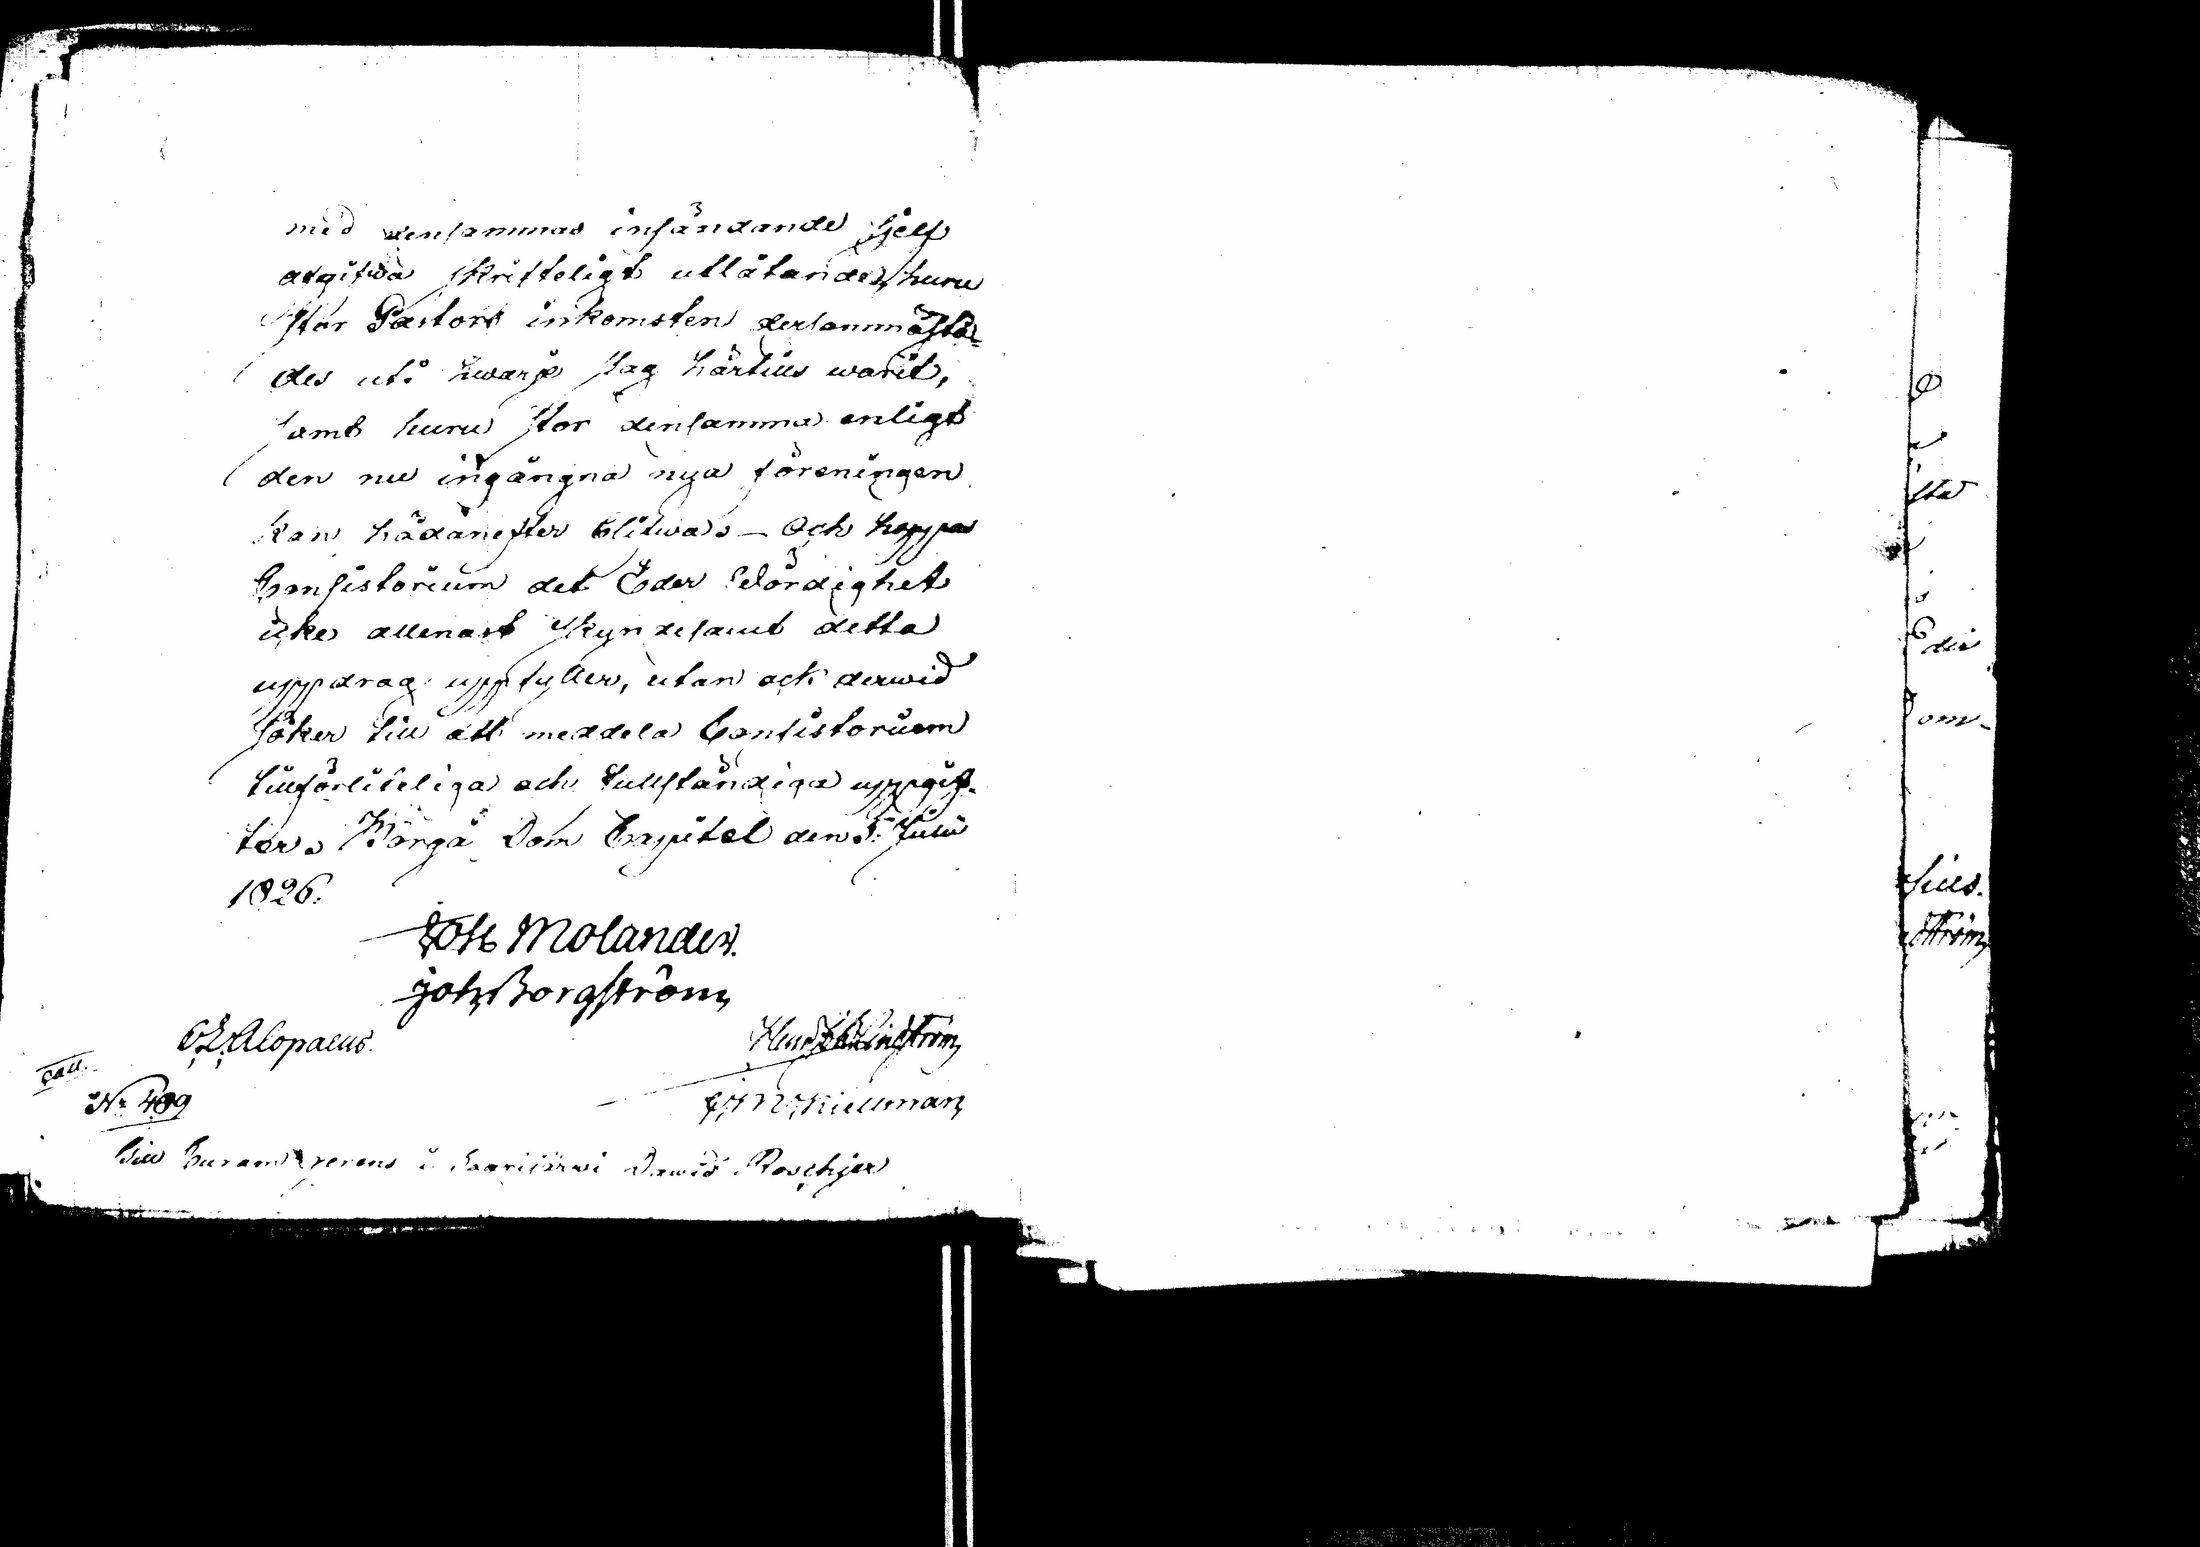 med densammas insändande sjelf
afgifwa skrifteligt utlåtande, huru
stor Pastors inkomsten dersammastä-
des uti hwarje slag härtills warit,
samt huru stor densamma enligt
den nu ingångna nya föreningen
kan hädanefter blifwa. - Och hoppas
Consistorium det Eder Wördighet
icke allenast skyndesamt detta
uppdrag uppfyller, utan ock derwid
söker till att meddela Consistorium
tillförliteliga och fullständiga uppgif-
ter. Borgå Dom Capitel den 5. Julii
1826.
Joh Molander.
Joh. Borgström
Alopaeus.
Lindström
Kiellman
N: 409
Till i Saarijärvi Dawid Roschier
sta
Eder
om-
lius.
ström